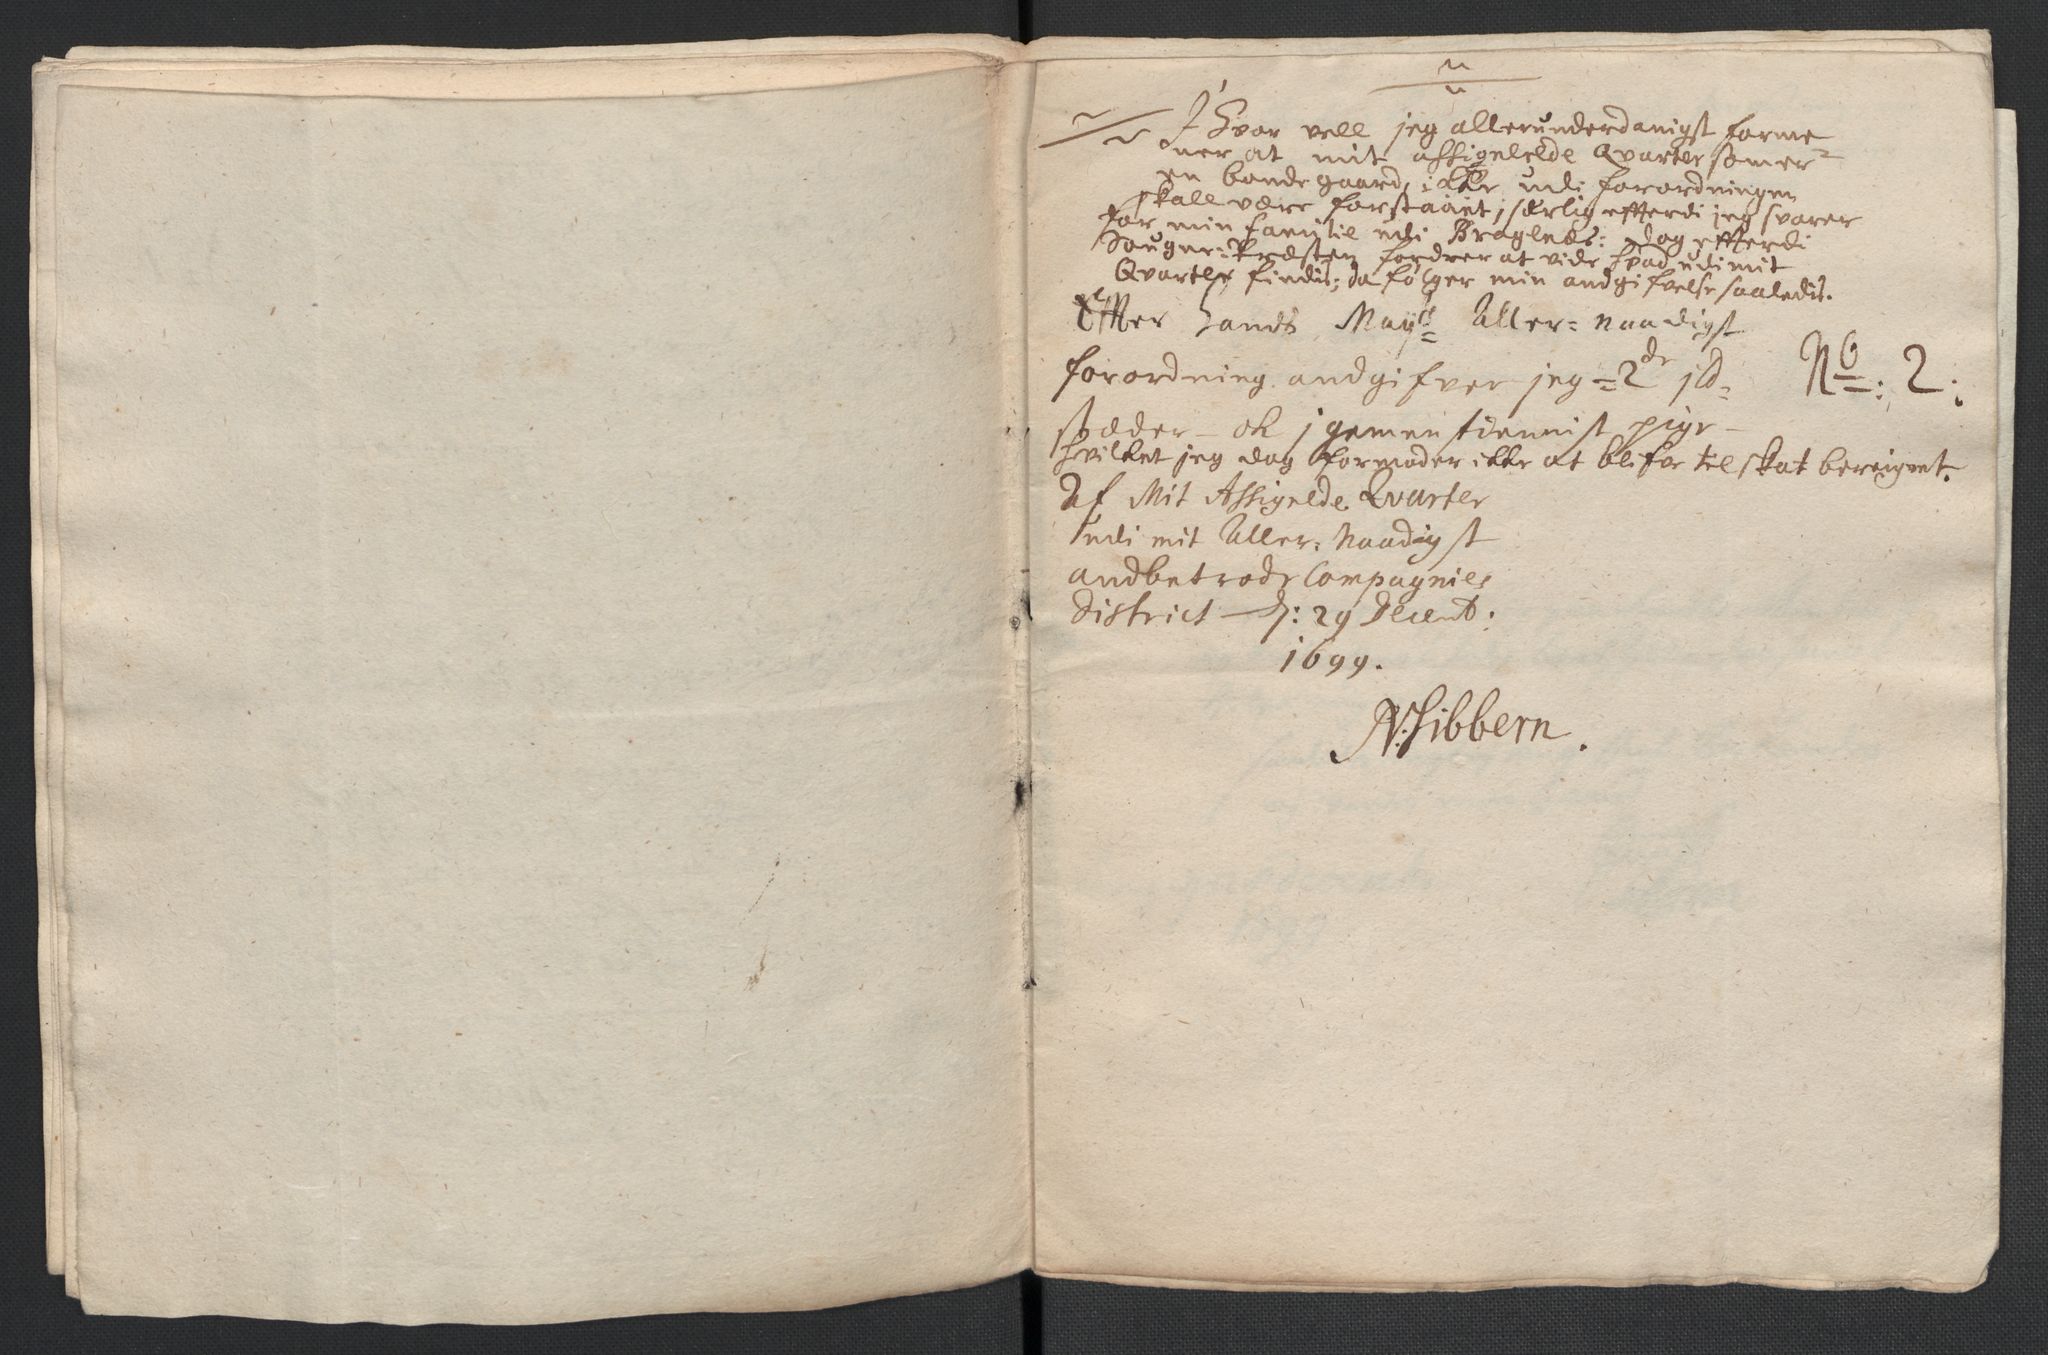 I Hvor vell jeg allerunderdanigst forme-
ner at mit assignerede Qvarter som er
en bonde gaard, icke udi forordningen
skall være forstaaet, særlig effterdi jeg svarer
for min familie udi Bragenæs: dog effterdi
Sougne: Præsten fordrer at vide hvad udi mit
Qvarter findis; da følger min andgifvelse saaledis.
Effter Hands Mayts Aller: naadigst
forordning andgifver jeg = 2de ild- No: 2:
stæder - ok 1 gemen tiennist pige -
hvilket jeg dog formoder ikke at blifve til skat bereignet.
Af Mit Assignelde Qvarter
udi mit Aller: Naadigst
andbetrode Compagnies
district - d: 29 Decemb:
1699.
N: Sibbern.